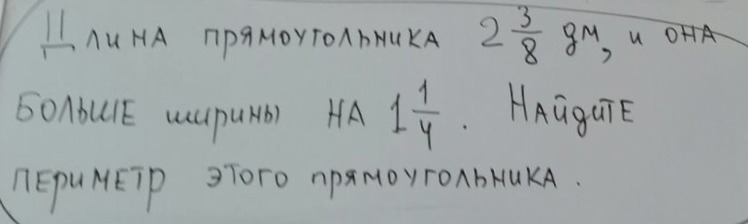 Длина прямоугольника 2 3/8 дм, и она
больше ширины на 1 1/4. Найдите
периметр этого прямоугольника.